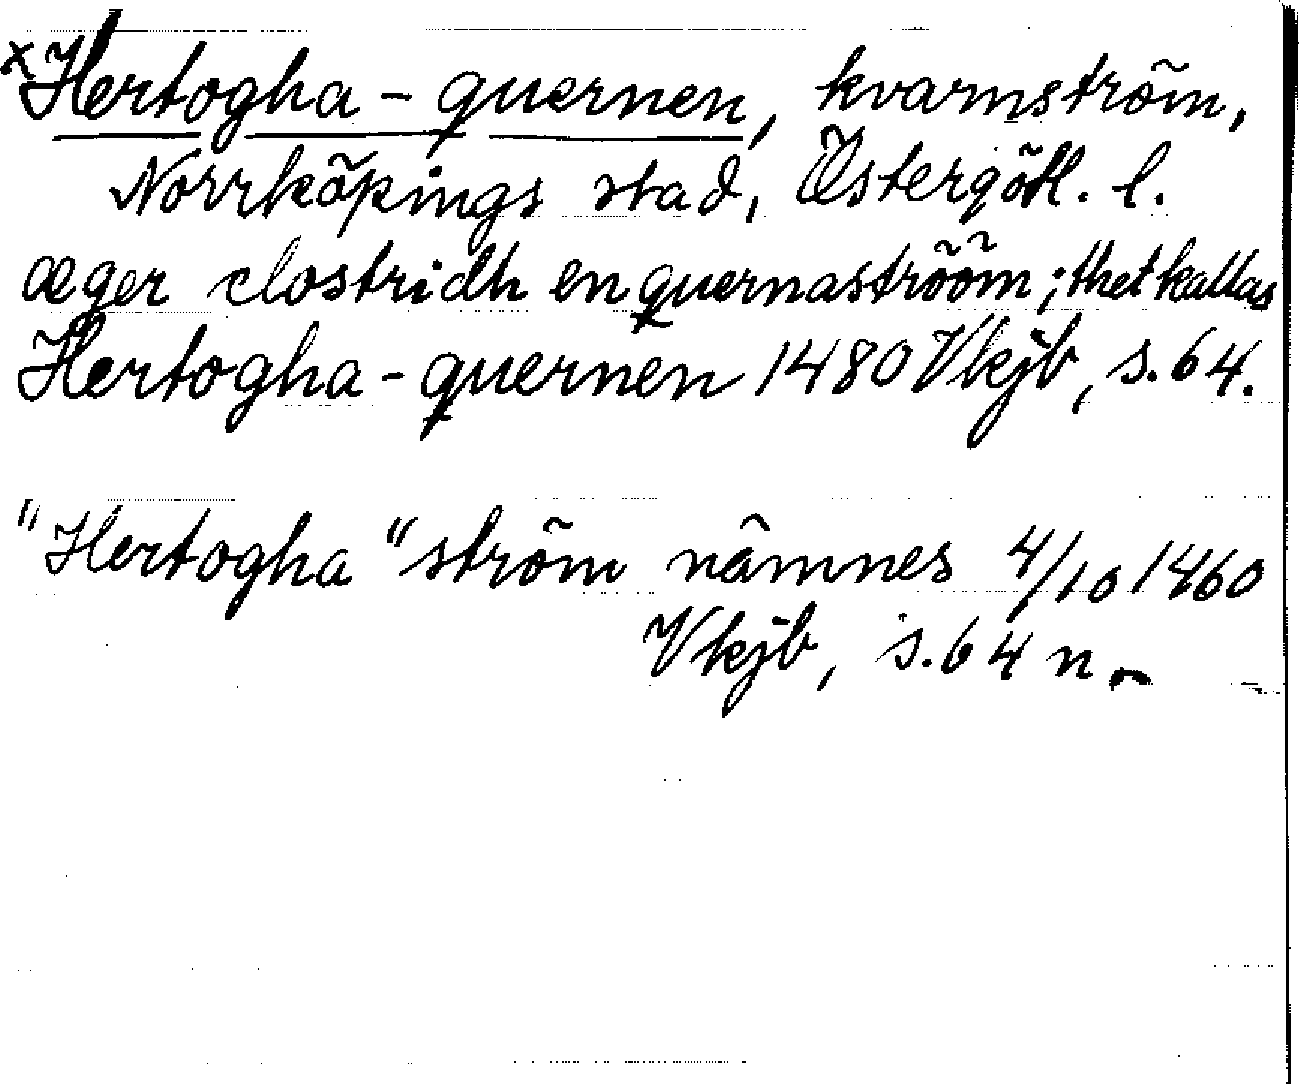 x Hertogha - quernen, kvarnström,
Norrköpings stad, Östergötl. l.
æger clostridh en quernaströöm; thet kallas
Hertogha - quernen 1480 Vkjb, s. 64.
"Hertogha" ström nämnes 4/10 1460
Vkjb, s. 64 n.